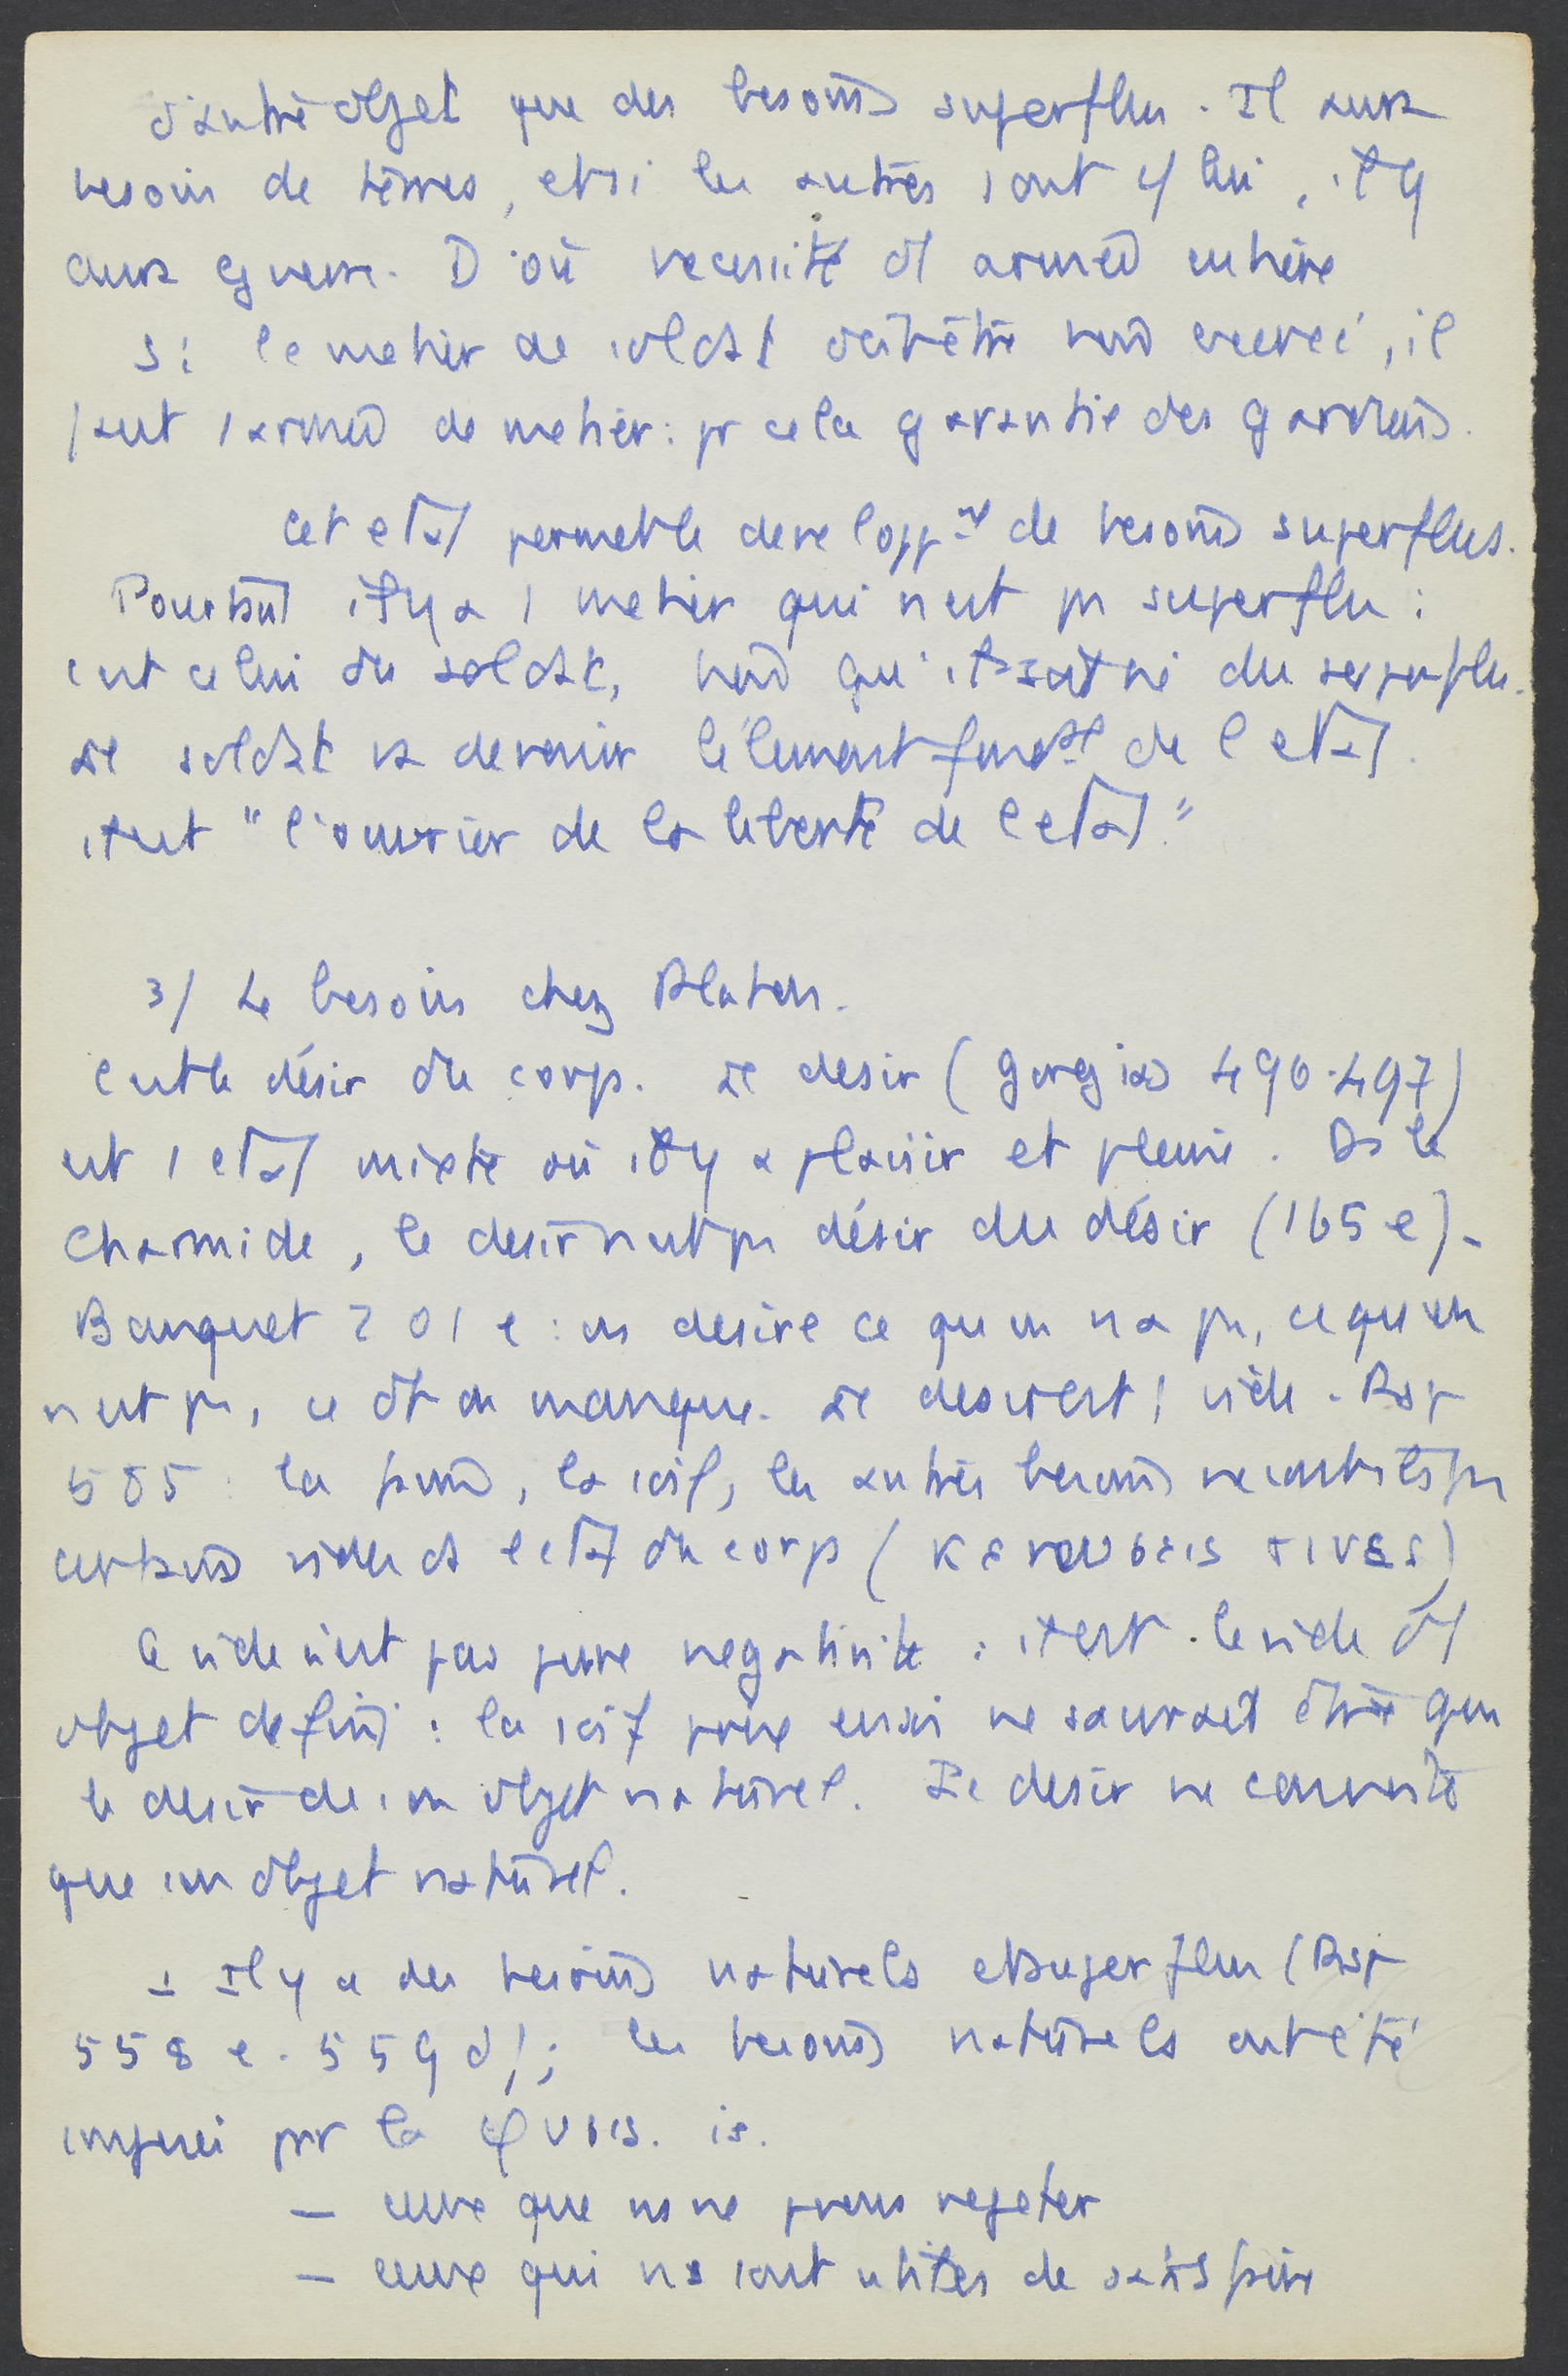 d'autre objet que des besoins superflus. Il aura
besoin de terres, et si les autres sont c/ lui, il y
aura guerre. D'où nécessité d'1 armée entière
Si le métier de soldat doit être bien exercé, il
faut 1 armée de métier : pr cela garantie des gardiens.
Cet état permet le développmt de besoins superflus.
Pourtant il y a 1 métier qui n'est pas superflu :
c'est celui du soldat, bien qu'il soit né du superflu.
Le soldat va devenir l'élément fondal de l'état.
il est "l'ouvrier de la liberté de l'état."
3/ Le besoin chez Platon.
C'est le désir du corps. Le désir (Gorgias 496.497)
est 1 état mixte où il y a plaisir et peine. Ds le
Charmide, le désir n'est pas désir du désir (165 e).
Banquet 201 e : on désire ce qu'on n'a pas, ce qu'on
n'est pas, ce dt on manque. Le désir est 1 vide. Rép
585 : la faim, la soif, les autres besoins ne sont-ils pas
certains vides ds l'état du corps (κενώσεις τινες)
Ce vide n'est pas pure négativité : il est le vide d'1
objet défini : la soif prise en soi ne saurait être que
le désir de son objet naturel. Le désir ne convoite
que son objet naturel.
1 Il y a des besoins naturels et superflus (Rép
558 e. 559 d) ; les besoins naturels ont été
imposés par la φυσις. is.
— ceux que ns ne pvons rejeter
— ceux qui ns sont utiles de satisfaire